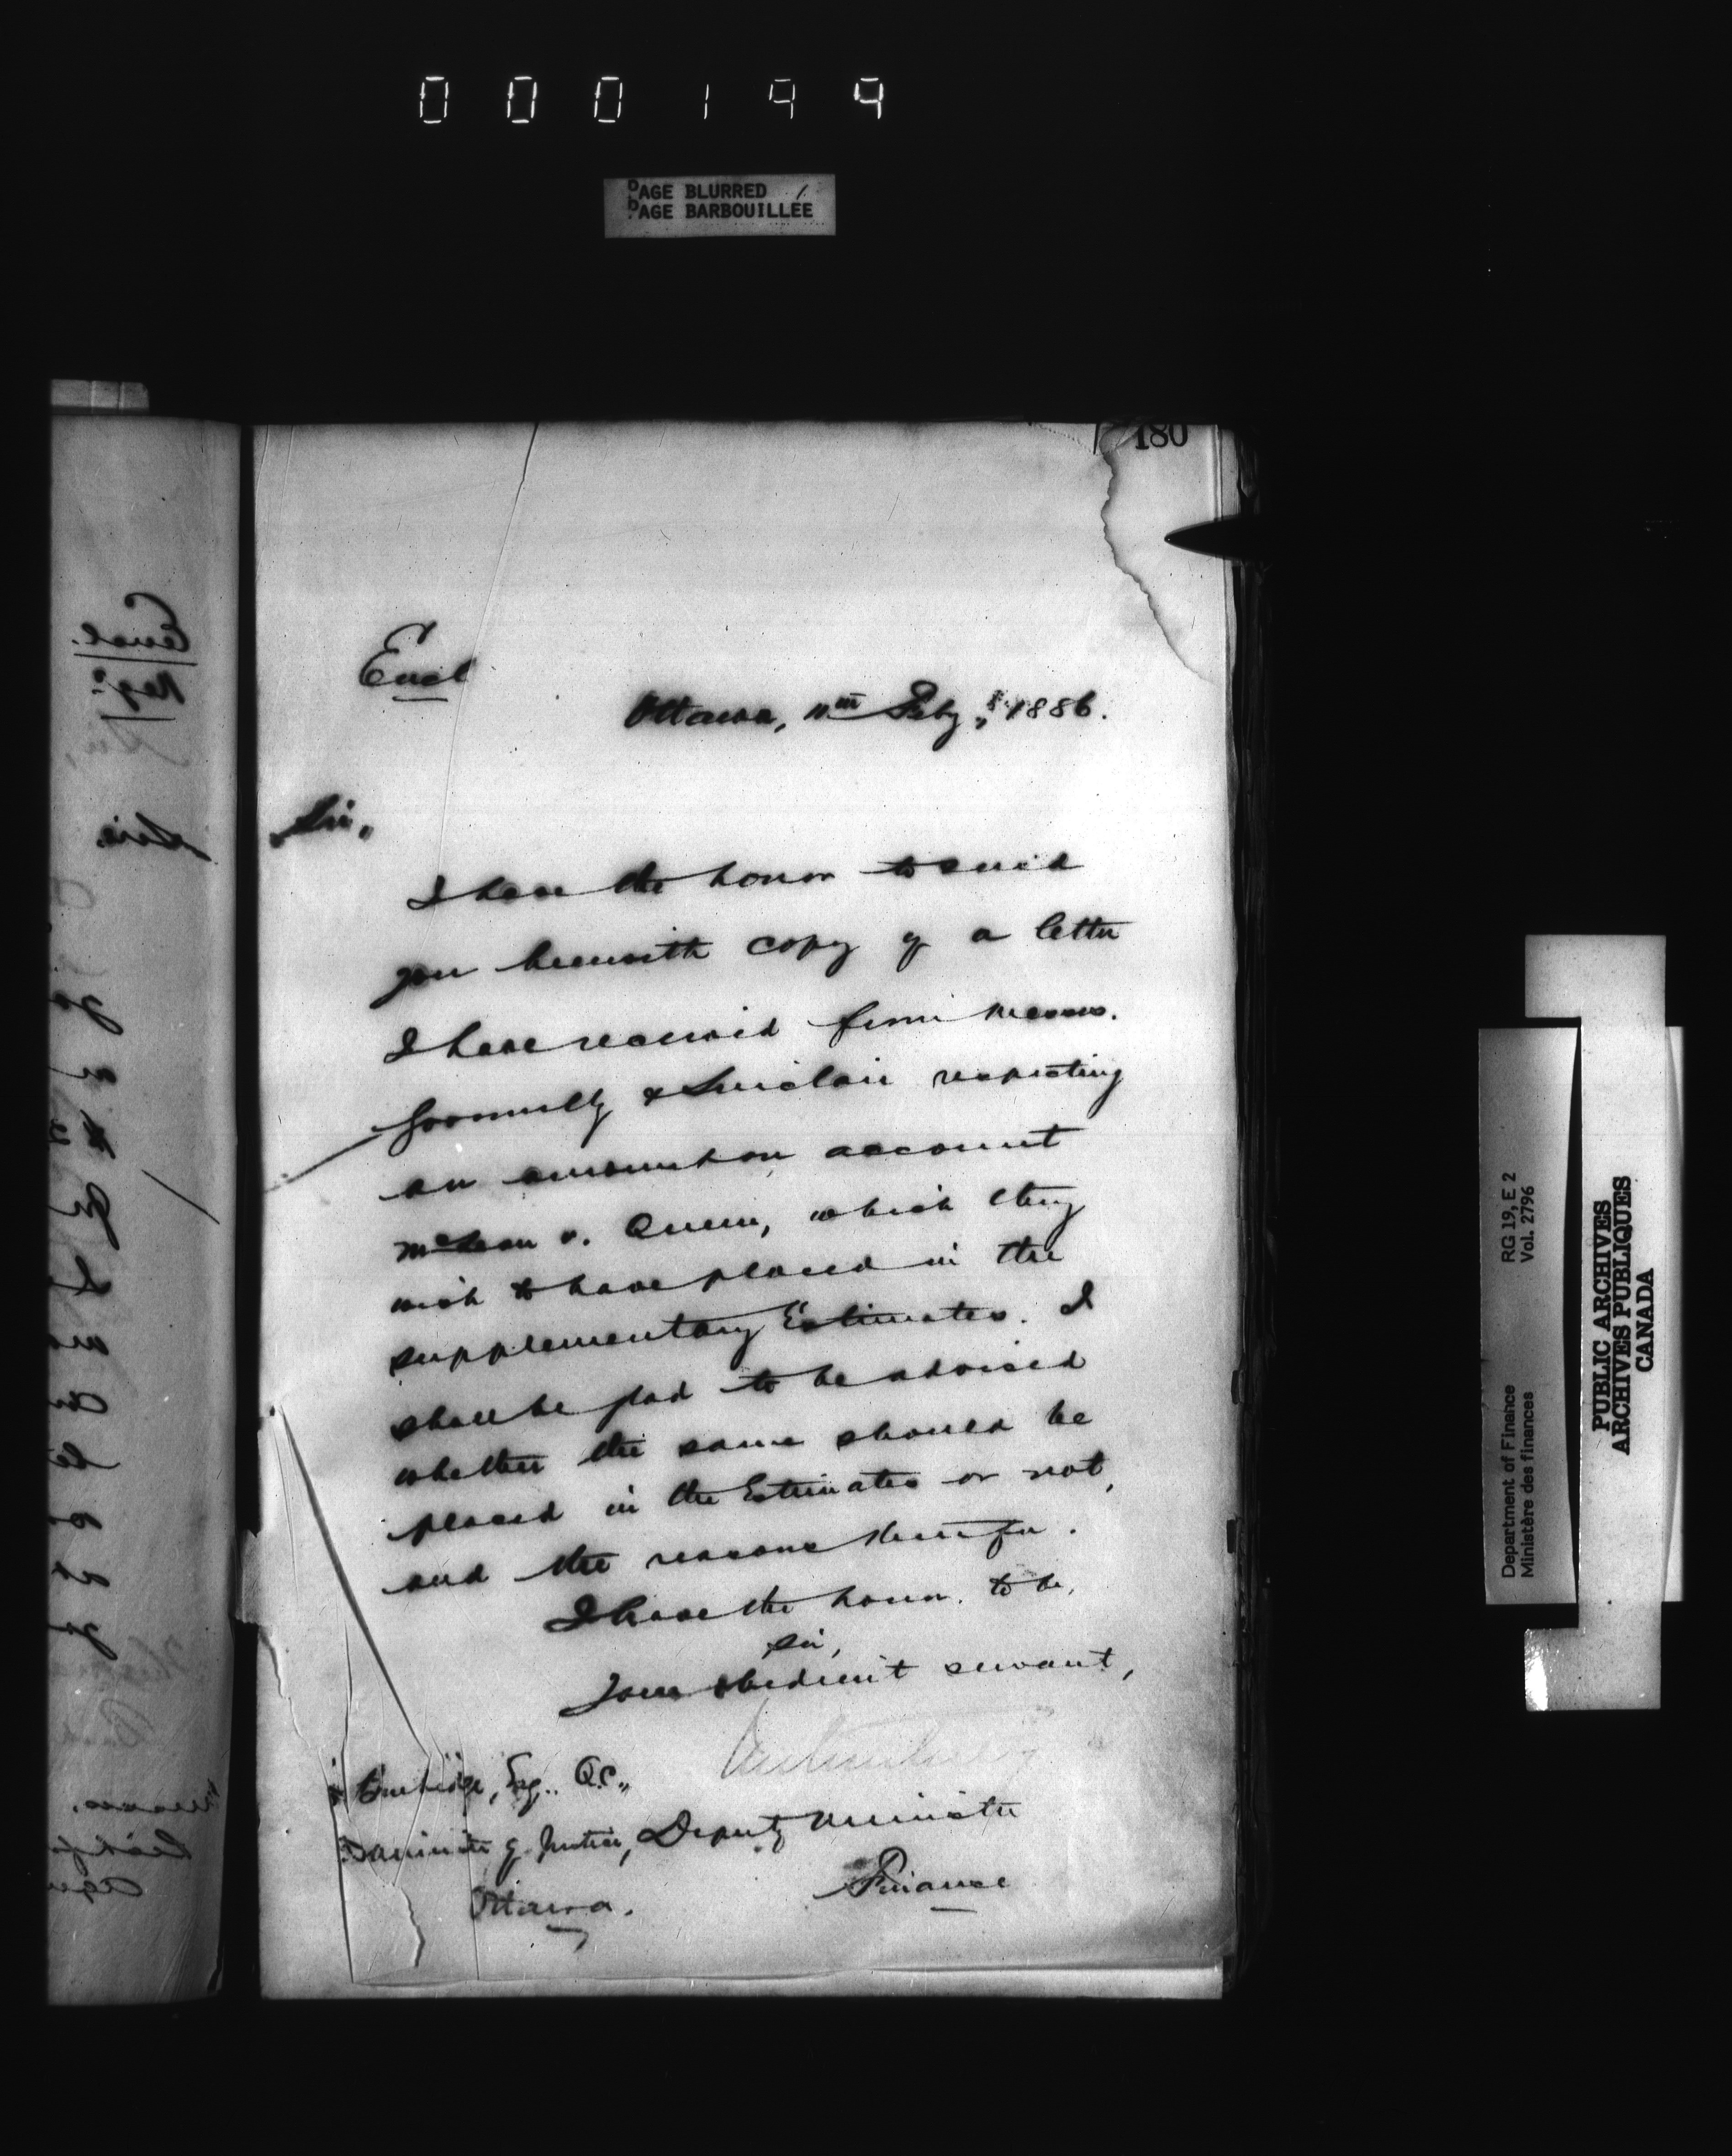 000199
PAGE BLURRED
PAGE BARBOUILLÉE
180
Encl
Ottawa, 11th Feby, 1886.
Sir,
I have the honor to send
you herewith copy of a letter
I have received from Messrs.
Gormully & Sinclair respecting
an amount on account
McLean v. Queen, which they
wish to have placed in the
supplementary Estimates. I
shall be glad to be advised
whether the same should be
placed in the Estimates or not,
and the reasons therefor.
I have the honor to be,
Sir,
Your obedient servant,
Burbidge, Esq., Q.C.,
Minister of Justice, Deputy Minister
Ottawa. Finance
Department of Finance RG 19, E 2
Ministère des finances Vol. 2796
PUBLIC ARCHIVES
ARCHIVES PUBLIQUES
CANADA